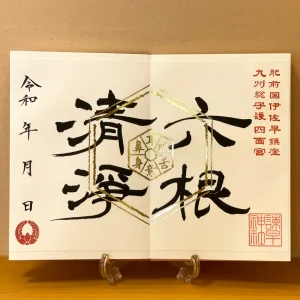 肥前国伊佐早鎮座
九州総守護四面宮
六根
清淨
令和 年 月 日
諫早
神社